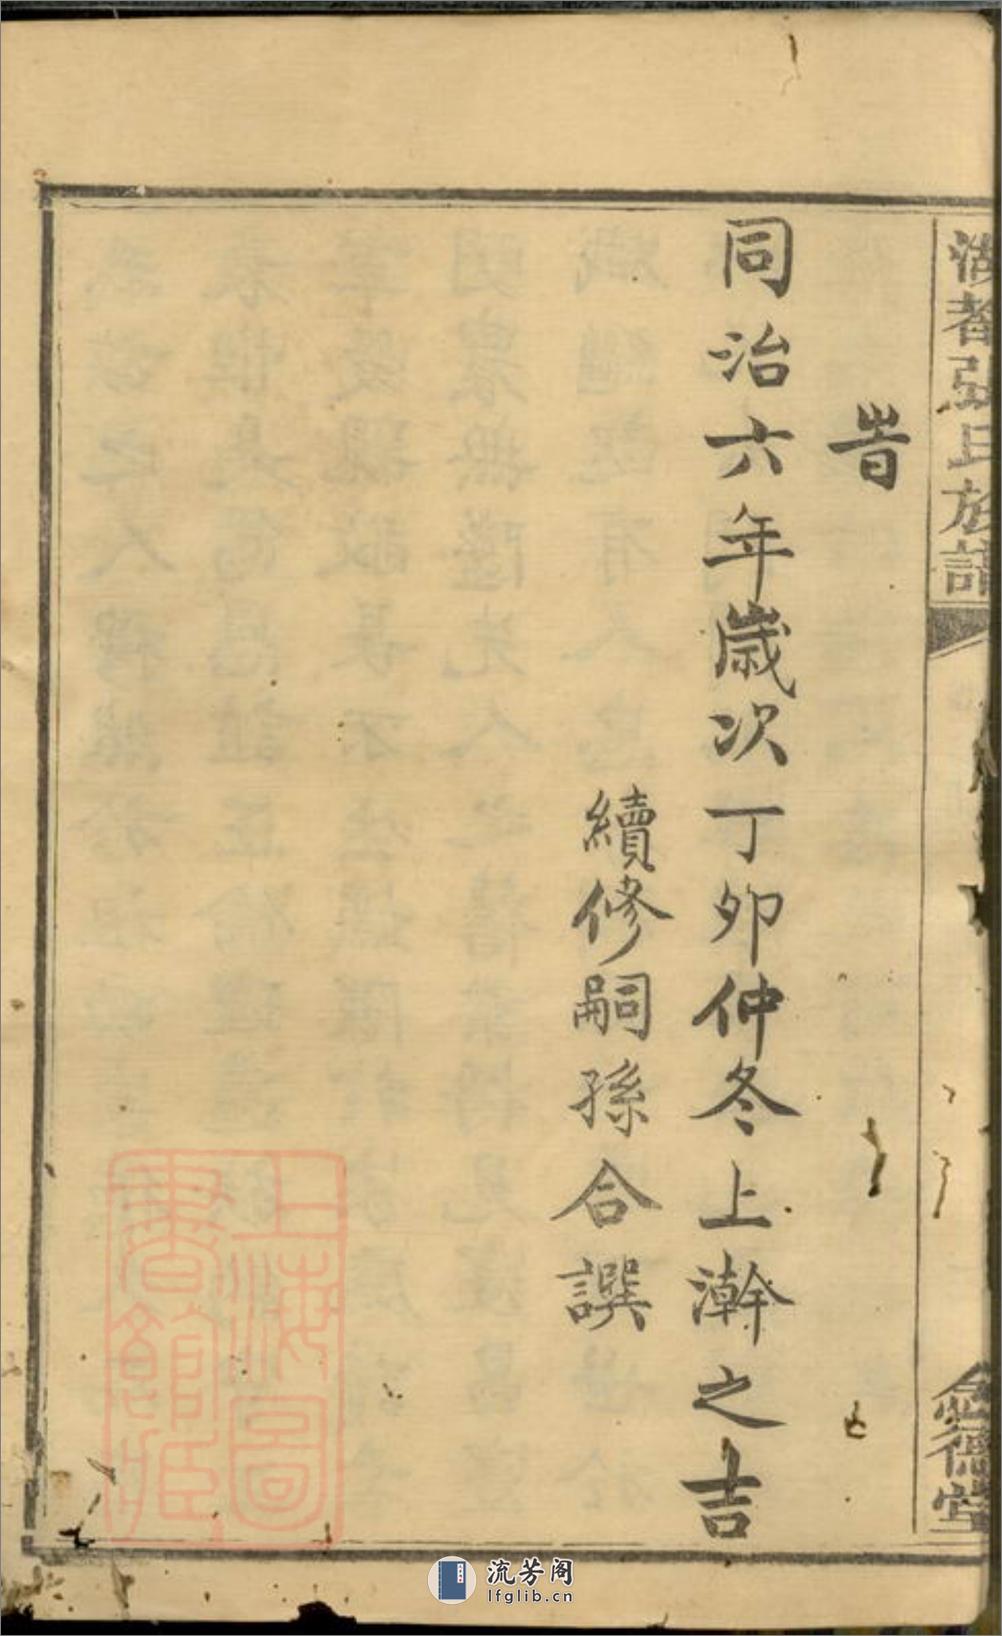 湖都張氏族譜
念德堂
旹
同治六年歲次丁卯仲冬上澣之吉
續修嗣孫合譔
上海圖書館藏
流芳阁
lfglib.cn